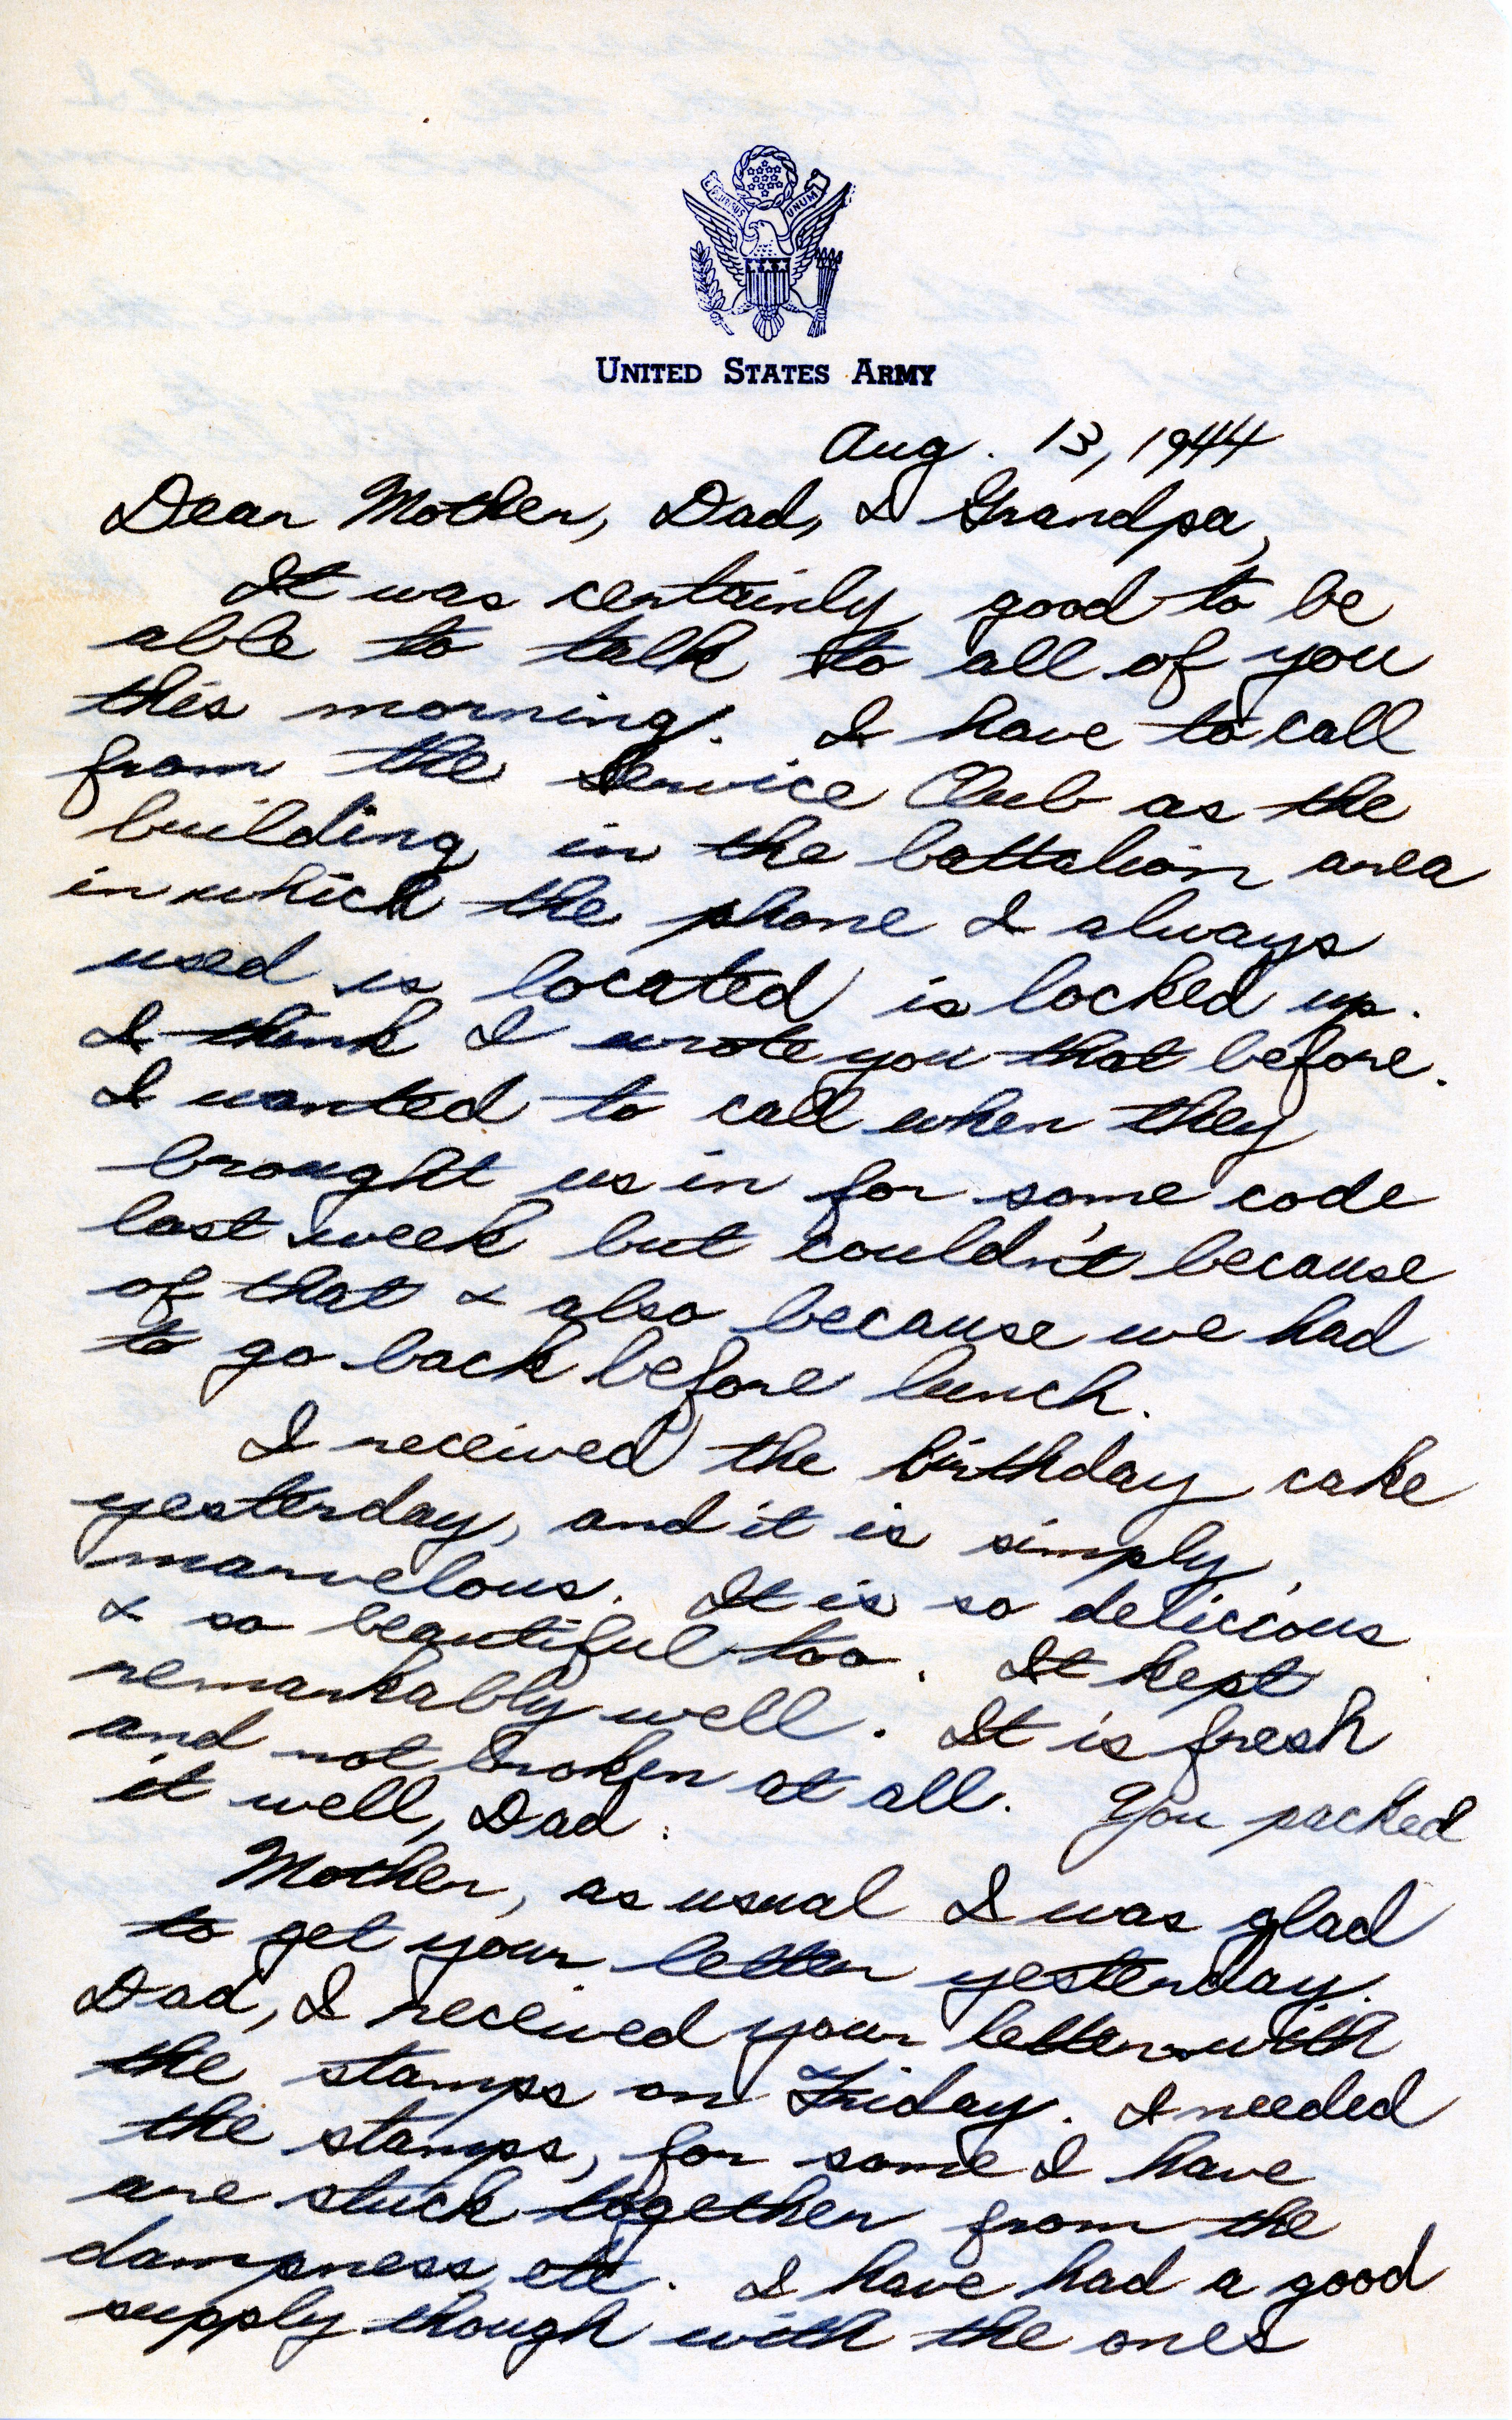 E PLURIBUS UNUM
UNITED STATES ARMY
Aug. 13, 1944
Dear Mother, Dad, & Grandpa,
It was certainly good to be
able to talk to all of you
this morning. I have to call
from the Service Club as the
building in the battalion area
in which the phone I always
used is located is locked up.
I think I wrote you that before.
I wanted to call when they
brought us in for some code
last week but couldn't because
of that & also because we had
to go back before lunch.
I received the birthday cake
yesterday, and it is simply
marvelous. It is so delicious
& so beautiful too. It kept
remarkably well. It is fresh
and not broken at all. You packed
it well, Dad.
Mother, as usual I was glad
to get your letter yesterday.
Dad, I received your letter with
the stamps on Friday. I needed
the stamps, for some I have
are stuck together from the
dampness, etc. I have had a good
supply though with the ones